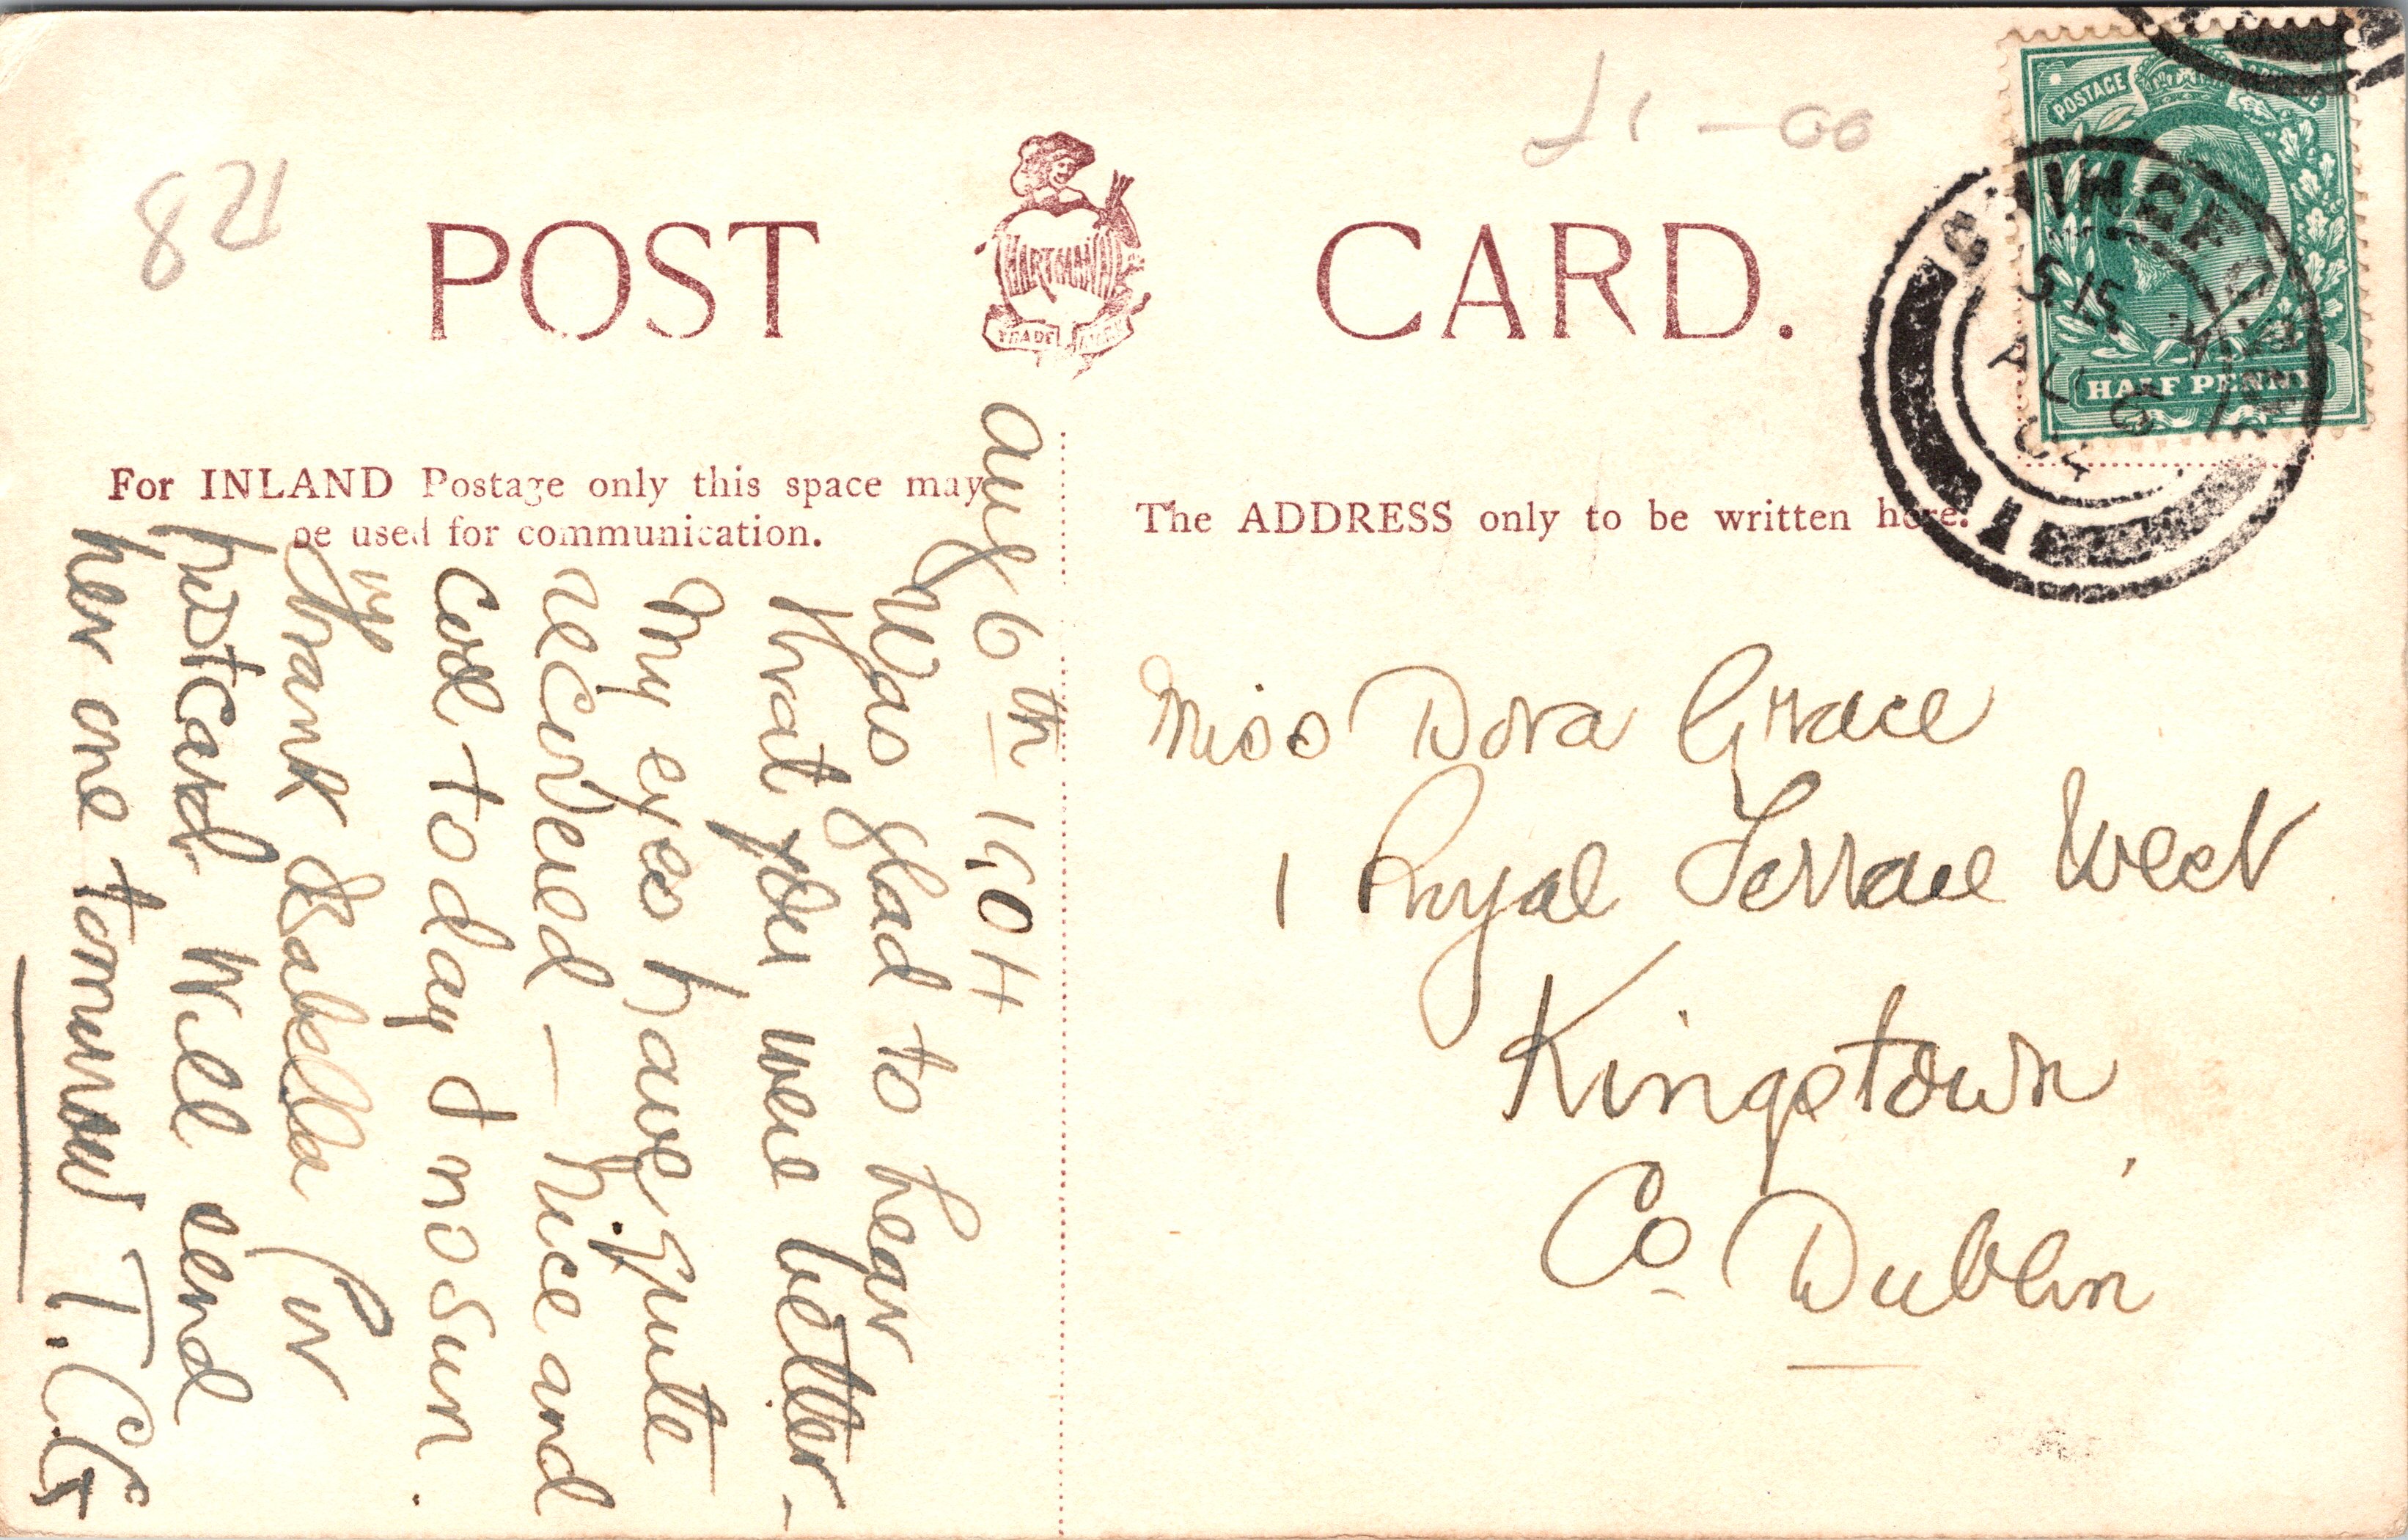 821
£1-00
POST CARD.
HARTMANN
TRADE MARK
POSTAGE
HALF PENNY
5 15
AU 6
04
For INLAND Postage only this space may
be used for communication.
The ADDRESS only to be written here.
Aug 6th 1904
Was glad to hear
that you were better -
My eyes have quite
recovered - Nice and
cool today & no sun.
Thank Isabella for
my
postcard will send
her one tomorrow T.C.G
Miss Dora Grace
1 Royal Terrace West
Kingstown
Co. Dublin